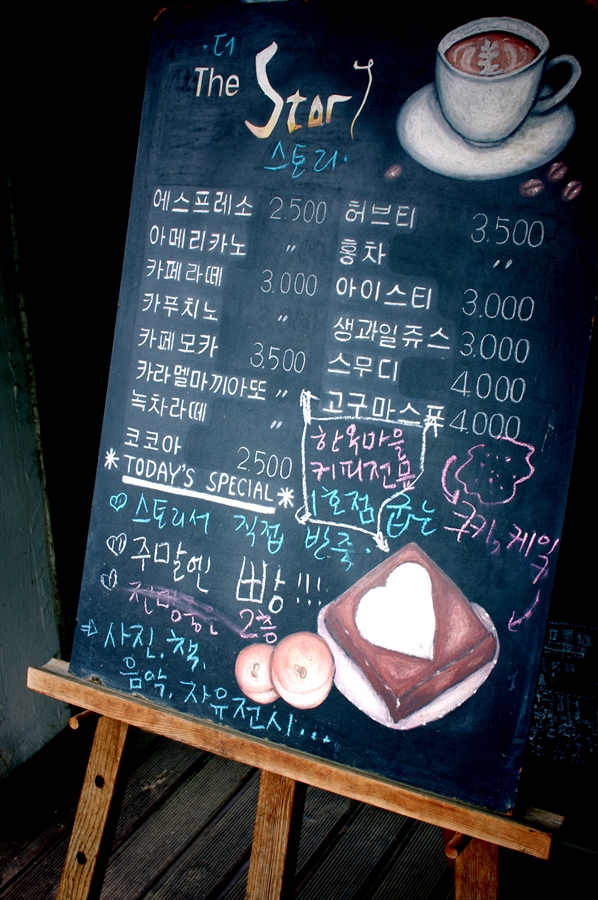 더
The Story
스토리
에스프레소 2.500
아메리카노 〃
카페라떼 3.000
카푸치노 〃
카페모카 3.500
카라멜마끼아또 〃
녹차라떼 〃
코코아 2.500
허브티 3.500
홍차 〃
아이스티 3.000
생과일쥬스 3.000
스무디 4.000
고구마스프 4.000
한옥마을
커피전문
1호점
*TODAY'S SPECIAL*
스토리서 직접 반죽· 굽는
쿠키, 케익
주말엔 빵!!!
전망좋은 2층
⇒ 사진, 책,
음악, 자유전시...